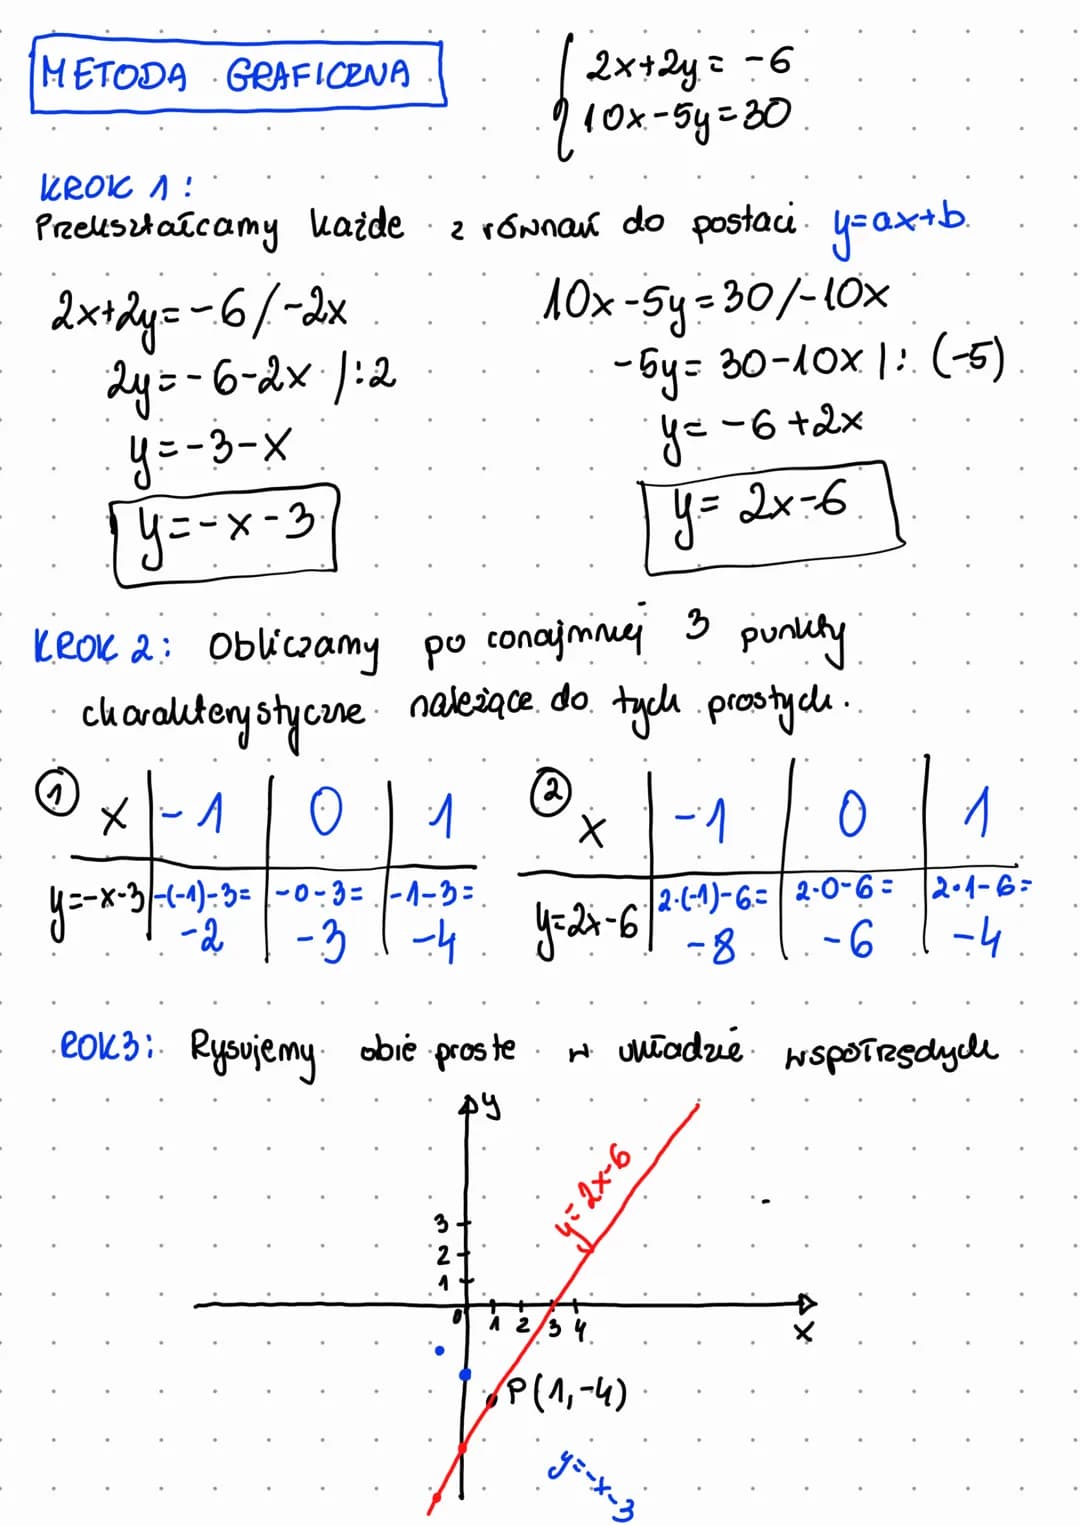 METODA GRAFICZNA
2x+2y = -6
10x-5y=30
KROK 1:
Przekształcamy każde z równań do postaci y=ax+b.
2x+2y=-6/-2x
2y=-6-2x /:2
y=-3-x
y=-x-3
10x-5y=30/-10x
-5y= 30-10x |: (-5)
y= -6+2x
y= 2x-6
KROK 2: Obliczamy po conajmniej 3 punkty
charakterystyczne należące do tych prostych.
1
x -1 0 1
y=-x-3 -(-1)-3= -0-3= -1-3=
-2 -3 -4
2
x -1 0 1
y=2x-6 2·(-1)-6= 2·0-6= 2·1-6=
-8 -6 -4
ROK3: Rysujemy obie proste w układzie współrzędych
y
y=2x-6
3
2
1
0 1 2 3 4
x
P(1,-4)
y=-x-3